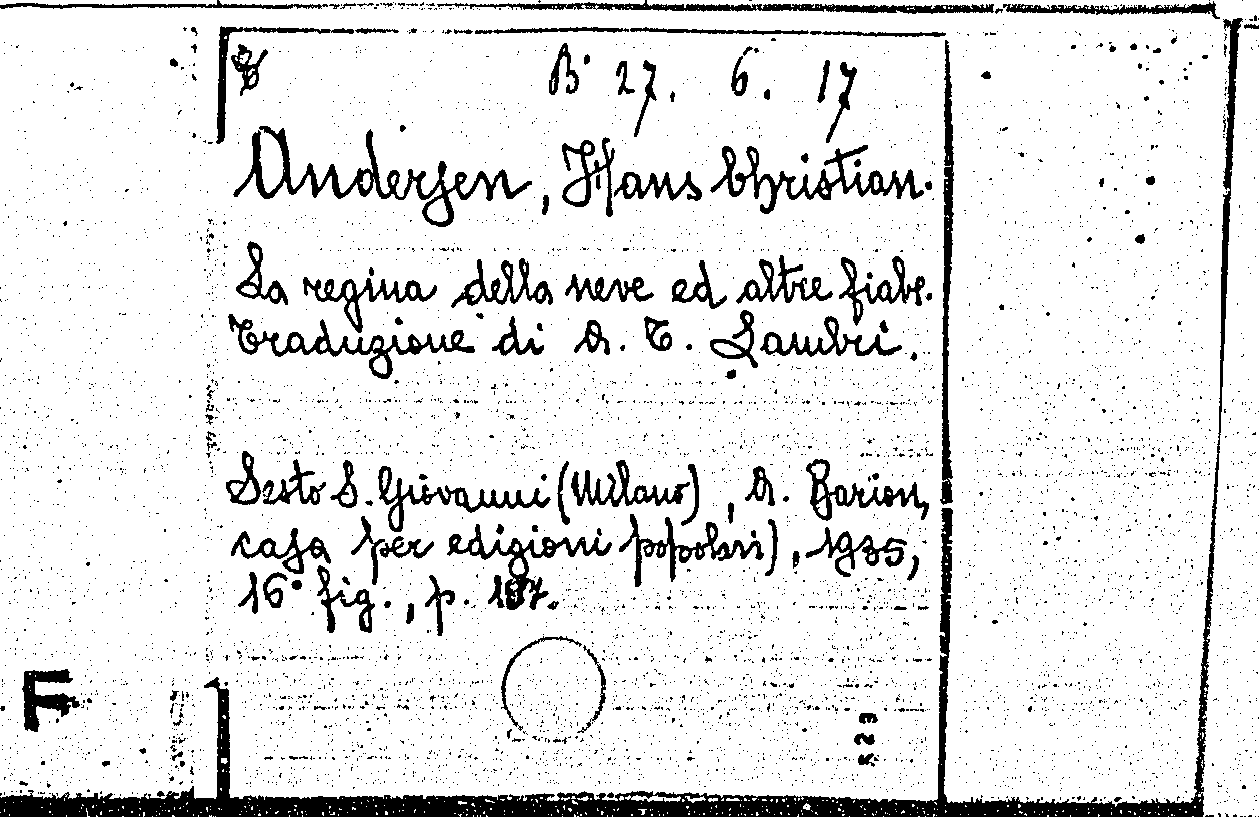 B° 27. 6. 17
Andersen, Hans Christian.
La regina della neve ed altre fiabe.
Traduzione di A. T. Lambri.
Sesto S. Giovanni (Milano), A. Barion,
casa per edizioni popolari), 1935,
16° fig., p.
F
523